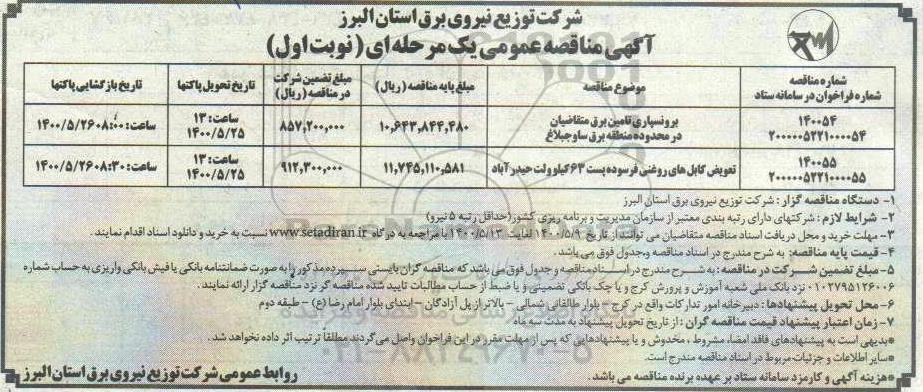 شرکت توزیع نیروی برق استان البرز
آگهی مناقصه عمومی یک مرحله ای (نوبت اول)
شماره مناقصه
شماره فراخوان در سامانه ستاد
موضوع مناقصه
مبلغ پایه مناقصه (ریال)
مبلغ تضمین شرکت
در مناقصه (ریال)
تاریخ تحویل پاکتها
تاریخ بازگشایی پاکتها
۱۴۰۰۵۴
۲۰۰۰۰۰۵۲۲۱۰۰۰۰۵۴
برونسپاری تامین برق متقاضیان
در محدوده منطقه برق ساوجبلاغ
۱۰,۶۴۳,۸۴۴,۴۸۰
۸۵۷,۲۰۰,۰۰۰
ساعت: ۱۳
۱۴۰۰/۵/۲۵
ساعت: ۸:۰۰ ۱۴۰۰/۵/۲۶
۱۴۰۰۵۵
۲۰۰۰۰۰۵۲۲۱۰۰۰۰۵۵
تعویض کابل های روغنی فرسوده پست ۶۳ کیلوولت حیدرآباد
۱۱,۷۴۵,۱۱۰,۵۸۱
۹۱۲,۳۰۰,۰۰۰
ساعت: ۱۳
۱۴۰۰/۵/۲۵
ساعت: ۸:۳۰ ۱۴۰۰/۵/۲۶
۱- دستگاه مناقصه گزار: شرکت توزیع نیروی برق استان البرز
۲- شرایط لازم: شرکتهای دارای رتبه بندی معتبر از سازمان مدیریت و برنامه ریزی کشور(حداقل رتبه ۵ نیرو)
۳- مهلت خرید و محل دریافت اسناد مناقصه متقاضیان می توانند از تاریخ ۱۴۰۰/۵/۹ لغایت ۱۴۰۰/۵/۱۳ با مراجعه به درگاه www.setadiran.ir نسبت به خرید و دانلود اسناد اقدام نمایند.
۴- قیمت پایه مناقصه: به شرح مندرج در اسناد مناقصه و جدول فوق می باشد.
۵- مبلغ تضمین شرکت در مناقصه: به شرح مندرج در اسناد مناقصه و جدول فوق می باشد که مناقصه گران بایستی سپرده مذکور را به صورت ضمانتنامه بانکی یا فیش بانکی واریزی به حساب شماره
۰۱۰۲۷۹۵۱۲۶۰۰۶ نزد بانک ملی شعبه آموزش و پرورش کرج و یا چک بانکی تضمینی و یا ضبط از حساب مطالبات تایید شده مناقصه گر نزد مناقصه گزار ارائه نمایند.
۶- محل تحویل پیشنهادها: دبیرخانه امور تدارکات واقع در کرج - بلوار طالقانی شمالی - بالاتر از پل آزادگان - ابتدای بلوار امام رضا (ع) - طبقه دوم
۷- زمان اعتبار پیشنهاد قیمت مناقصه گران: از تاریخ تحویل پیشنهاد به مدت سه ماه
*بدیهی است به پیشنهادهای فاقد امضاء، مشروط، مخدوش و یا پیشنهادهایی که پس از مهلت مقرر در این فراخوان واصل می گردند مطلقاً ترتیب اثر داده نخواهد شد.
*سایر اطلاعات و جزئیات مربوط در اسناد مناقصه مندرج است.
*هزینه آگهی و کارمزد سامانه ستاد بر عهده برنده مناقصه می باشد.
روابط عمومی شرکت توزیع نیروی برق استان البرز
۰۲۱-۸۸۳۴۹۶۷۰-۵